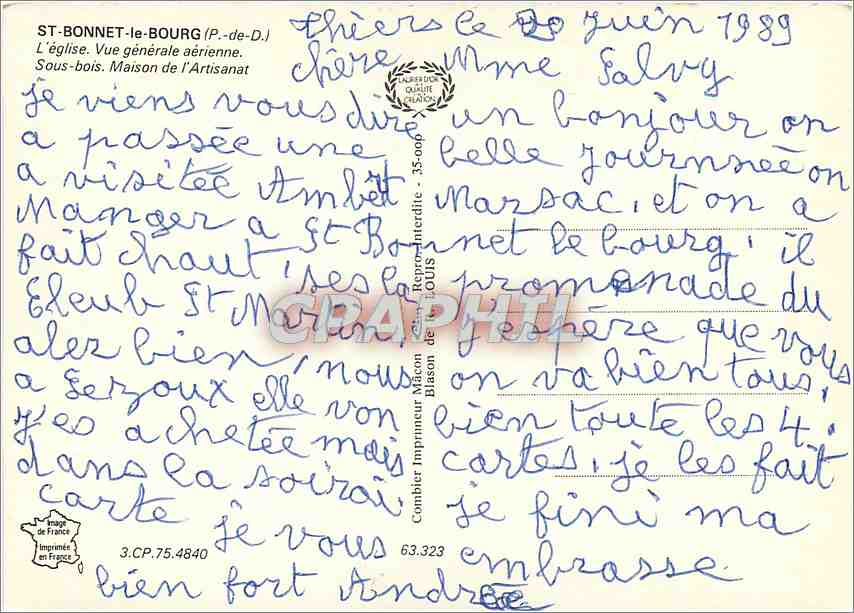 ST-BONNET-le-BOURG (P.-de-D.)
L'église. Vue générale aérienne.
Sous-bois. Maison de l'Artisanat
LAURIER D'OR
DE LA
QUALITÉ
DE
CRÉATION
thiers le 20 Juin 1989
chère Mme Salvy
je viens vous dire un bonjour on
a passée une belle journnéé on
a visitée Ambert Marsac, et on a
Manger a St Bonnet le bourg, il
fait chaut, ses la promenade du
Eleub St Martin, j'espére que vous
alez bien, nous on va bien tous,
a Lezoux elle von bien toute les 4,
j'es achetée mais cartes, je les fait
dans la soirai, je fini ma
carte je vous embrasse
bien fort Andrée
Combier Imprimeur Mâcon Repro. Interdite - 35-000
Blason de St LOUIS
CRAPHIL
Image
de France
Imprimée
en France
3.CP.75.4840
63.323